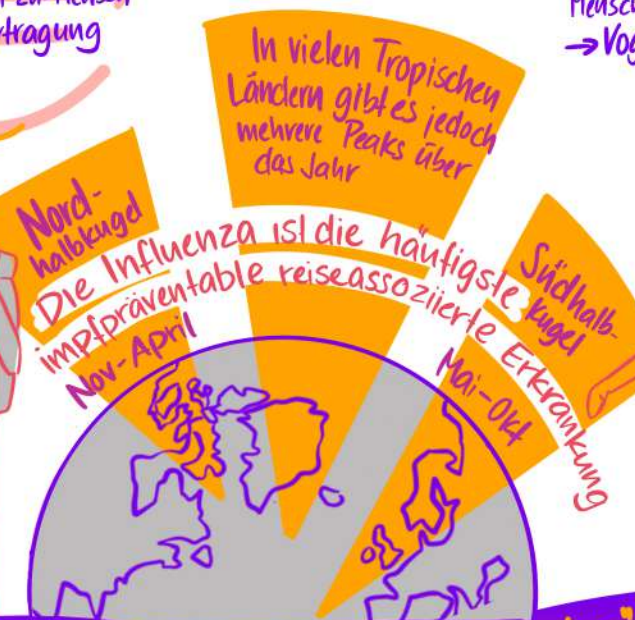 rtragung
Mensch
→Vog
In vielen Tropischen
Ländern gibt es jedoch
mehrere Peaks über
das Jahr
Nord-
halbkugel
Südhalb-
kugel
Die Influenza ist die häufigste
impfpräventable reiseassoziierte Erkrankung
Nov-April
Mai-Okt